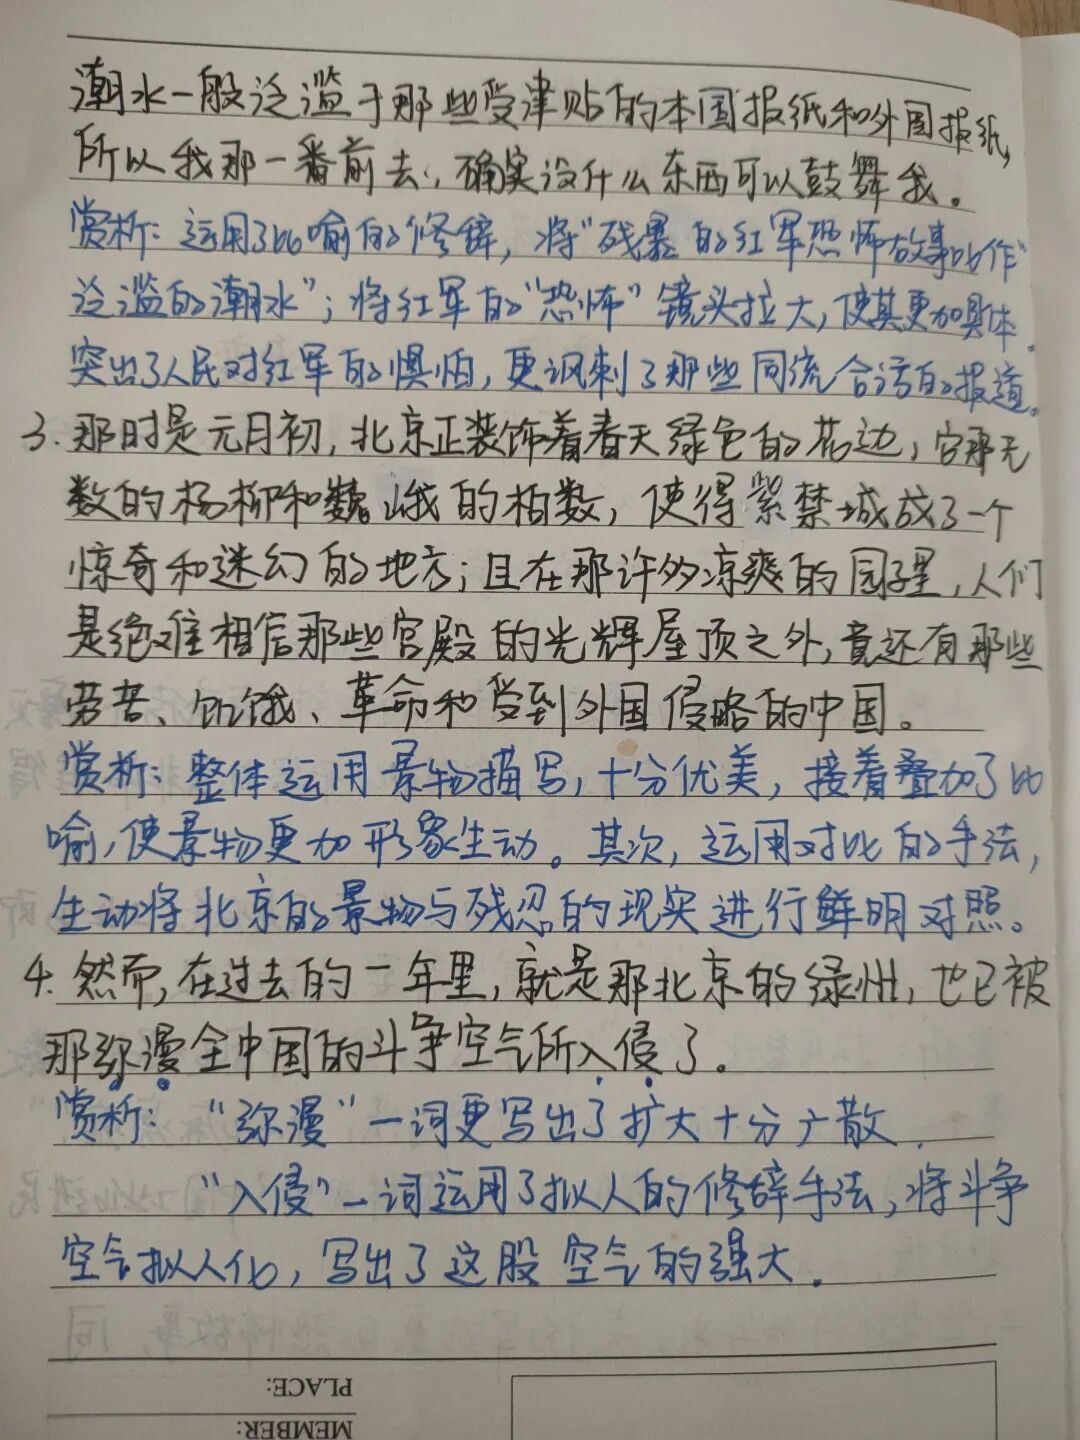 潮水一般泛滥于那些受津贴的本国报纸和外国报纸,
所以我那一番前去,确实没什么东西可以鼓舞我。
赏析:运用了比喻的修辞,将"残暴的红军恐怖故事比作"
泛滥的潮水";将红军的"恐怖"镜头拉大,使其更加具体.
突出了人民对红军的惧怕,更讽刺了那些同流合污的报道。
3.那时是元月初,北京正装饰着春天绿色的花边,它那无
数的杨柳和巍峨的柏数,使得紫禁城成了一个
惊奇和迷幻的地方;且在那许多凉爽的园子里,人们
是绝难相信那些宫殿的光辉屋顶之外,竟还有那些
劳苦、饥饿、革命和受到外国侵略的中国。
赏析:整体运用景物描写,十分优美,接着叠加了比
喻,使景物更加形象生动。其次,运用对比的手法,
生动将北京的景物与残忍的现实进行鲜明对照。
4.然而,在过去的一年里,就是那北京的绿州,也已被
那弥漫全中国的斗争空气所入侵了。
赏析:"弥漫"一词更写出了扩大十分广散.
"入侵"一词运用了拟人的修辞手法,将斗争
空气拟人化,写出了这股空气的强大.
PLACE:
MEMBER: